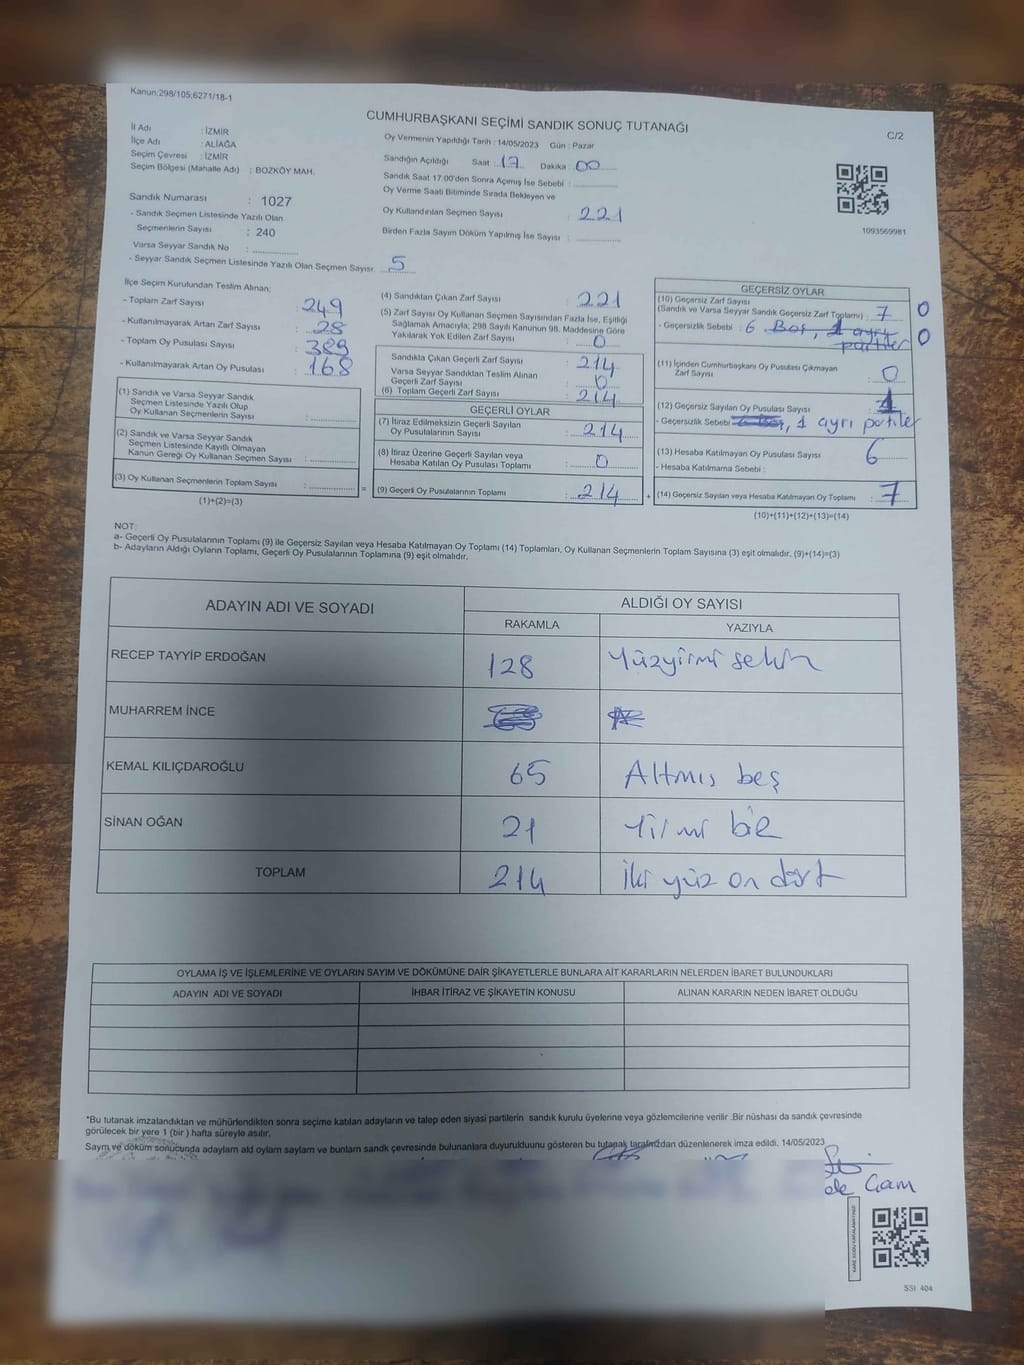 Kanun:298/105;6271/18-1
CUMHURBAŞKANI SEÇİMİ SANDIK SONUÇ TUTANAĞI
C/2
İl Adı : İZMİR
İlçe Adı : ALİAĞA
Seçim Çevresi : İZMİR
Seçim Bölgesi (Mahalle Adı) : BOZKÖY MAH.
Sandık Numarası : 1027
- Sandık Seçmen Listesinde Yazılı Olan
Seçmenlerin Sayısı : 240
Varsa Seyyar Sandık No :
- Seyyar Sandık Seçmen Listesinde Yazılı Olan Seçmen Sayısı: 5
Oy Vermenin Yapıldığı Tarih : 14/05/2023 Gün : Pazar
Sandığın Açıldığı Saat : 17 Dakika : 00
Sandık Saat 17:00'den Sonra Açmış İse Sebebi :
Oy Verme Saati Bitiminde Sırada Bekleyen ve
Oy Kullandırılan Seçmen Sayısı : 221
Birden Fazla Sayım Döküm Yapılmış İse Sayısı :
1093569981
İlçe Seçim Kurulundan Teslim Alınan;
- Toplam Zarf Sayısı : 249
- Kullanılmayarak Artan Zarf Sayısı : 28
- Toplam Oy Pusulası Sayısı : 389
- Kullanılmayarak Artan Oy Pusulası : 168
(1) Sandık ve Varsa Seyyar Sandık
Seçmen Listesinde Yazılı Olup
Oy Kullanan Seçmenlerin Sayısı :
(2) Sandık ve Varsa Seyyar Sandık
Seçmen Listesinde Kayıtlı Olmayan
Kanun Gereği Oy Kullanan Seçmen Sayısı :
(3) Oy Kullanan Seçmenlerin Toplam Sayısı : =
(1)+(2)=(3)
(4) Sandıktan Çıkan Zarf Sayısı : 221
(5) Zarf Sayısı Oy Kullanan Seçmen Sayısından Fazla İse, Eşitliği
Sağlamak Amacıyla; 298 Sayılı Kanunun 98. Maddesine Göre
Yakılarak Yok Edilen Zarf Sayısı : 0
Sandıkla Çıkan Geçerli Zarf Sayısı : 214
Varsa Seyyar Sandıktan Teslim Alınan
Geçerli Zarf Sayısı : 0
(6) Toplam Geçerli Zarf Sayısı : 214
GEÇERLİ OYLAR
(7) İtiraz Edilmeksizin Geçerli Sayılan
Oy Pusulalarının Sayısı : 214
(8) İtiraz Üzerine Geçerli Sayılan veya
Hesaba Katılan Oy Pusulası Toplamı : 0
(9) Geçerli Oy Pusulalarının Toplamı : 214 +
GEÇERSİZ OYLAR
(10) Geçersiz Zarf Sayısı
(Sandık ve Varsa Seyyar Sandık Geçersiz Zarf Toplamı) : 7 0
- Geçersizlik Sebebi : 6 Boş, 1 ayrı 0
partiler
(11) İçinden Cumhurbaşkanı Oy Pusulası Çıkmayan
Zarf Sayısı : 0
(12) Geçersiz Sayılan Oy Pusulası Sayısı : 1
- Geçersizlik Sebebi : 6 Boş, 1 ayrı patiler
(13) Hesaba Katılmayan Oy Pusulası Sayısı : 6
- Hesaba Katılmama Sebebi :
(14) Geçersiz Sayılan veya Hesaba Katılmayan Oy Toplamı : 7
(10)+(11)+(12)+(13)=(14)
NOT:
a- Geçerli Oy Pusulalarının Toplamı (9) ile Geçersiz Sayılan veya Hesaba Katılmayan Oy Toplamı (14) Toplamları, Oy Kullanan Seçmenlerin Toplam Sayısına (3) eşit olmalıdır. (9)+(14)=(3)
b- Adayların Aldığı Oyların Toplamı, Geçerli Oy Pusulalarının Toplamına (9) eşit olmalıdır.
ADAYIN ADI VE SOYADI
ALDIĞI OY SAYISI
RAKAMLA YAZIYLA
RECEP TAYYİP ERDOĞAN 128 Yüzyirmi sekiz
MUHARREM İNCE
KEMAL KILIÇDAROĞLU 65 Altmış beş
SİNAN OĞAN 21 Yirmi bir
TOPLAM 214 İki yüz on dört
OYLAMA İŞ VE İŞLEMLERİNE VE OYLARIN SAYIM VE DÖKÜMÜNE DAİR ŞİKAYETLERLE BUNLARA AİT KARARLARIN NELERDEN İBARET BULUNDUKLARI
ADAYIN ADI VE SOYADI İHBAR İTİRAZ VE ŞİKAYETİN KONUSU ALINAN KARARIN NEDEN İBARET OLDUĞU
*Bu tutanak imzalandıktan ve mühürlendikten sonra seçime katılan adayların ve talep eden siyasi partilerin sandık kurulu üyelerine veya gözlemcilerine verilir .Bir nüshası da sandık çevresinde
görülecek bir yere 1 (bir ) hafta süreyle asılır.
Sayım ve döküm sonucunda adayların ald oylam saylam ve bunlam sandk çevresinde bulunanlara duyurulduunu gösteren bu tutanak tarafımızdan düzenlenerek imza edildi. 14/05/2023
SSI 404